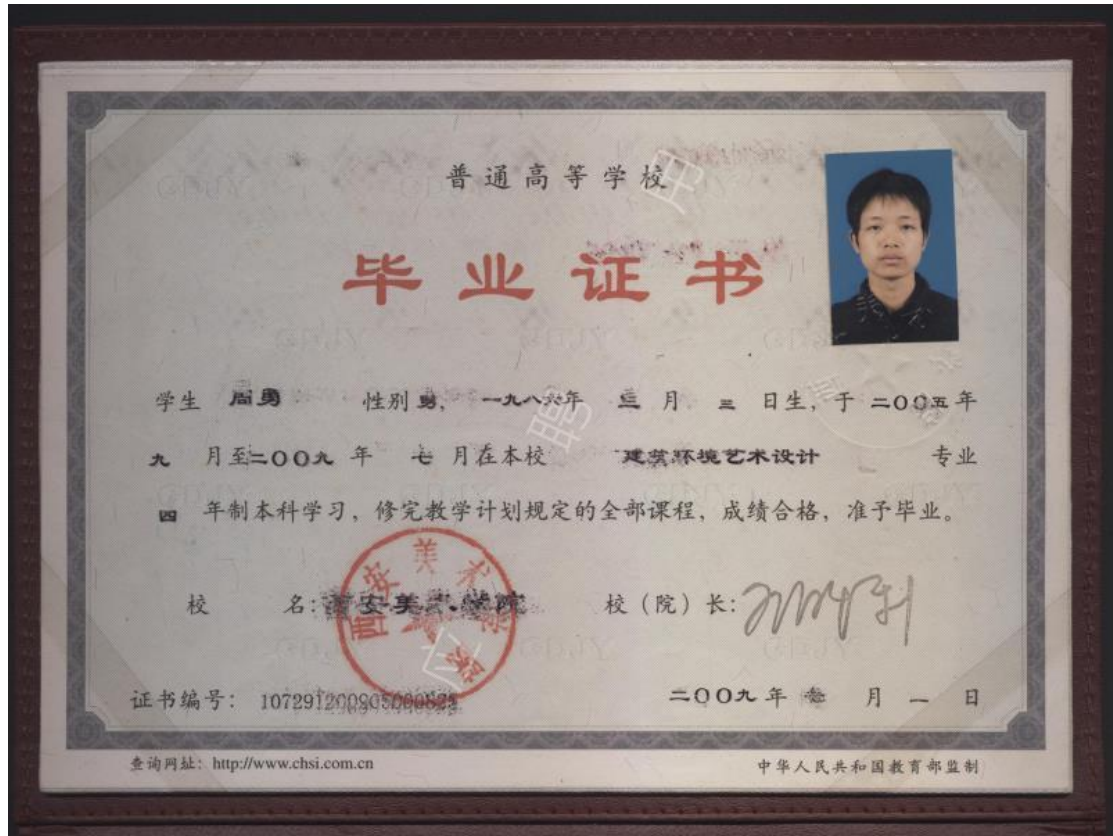 普通高等学校
毕业证书
学生 周勇 性别 男, 一九八六年 三 月 三 日生, 于 二〇〇五年
九 月至二〇〇九 年 七 月在本校 建筑环境艺术设计 专业
四 年制本科学习, 修完教学计划规定的全部课程, 成绩合格, 准予毕业。
校 名: 西安美术学院 校(院)长:
西安美术学院
证书编号: 107291200905000 二〇〇九 年 月 一 日
查询网址: http://www.chsi.com.cn 中华人民共和国教育部监制